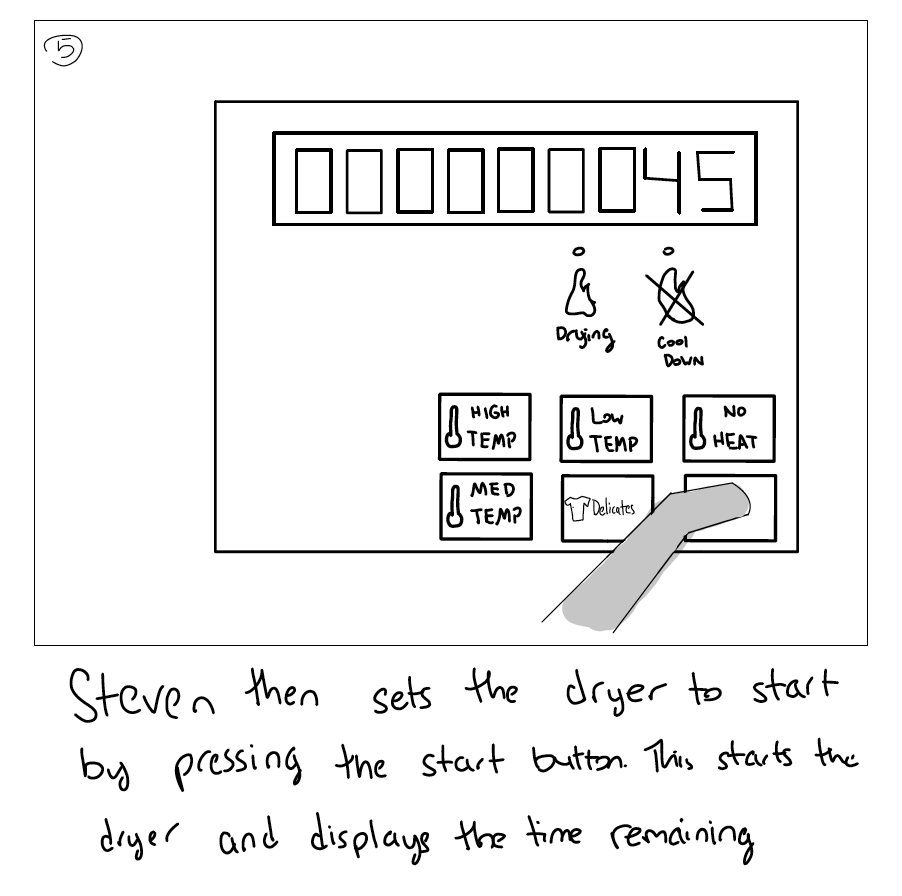 5
000000045
Drying
Cool
DOWN
HIGH
TEMP
Low
TEMP
NO
HEAT
MED
TEMP
Delicates
Steven then sets the dryer to start
by pressing the start button. This starts the
dryer and displays the time remaining